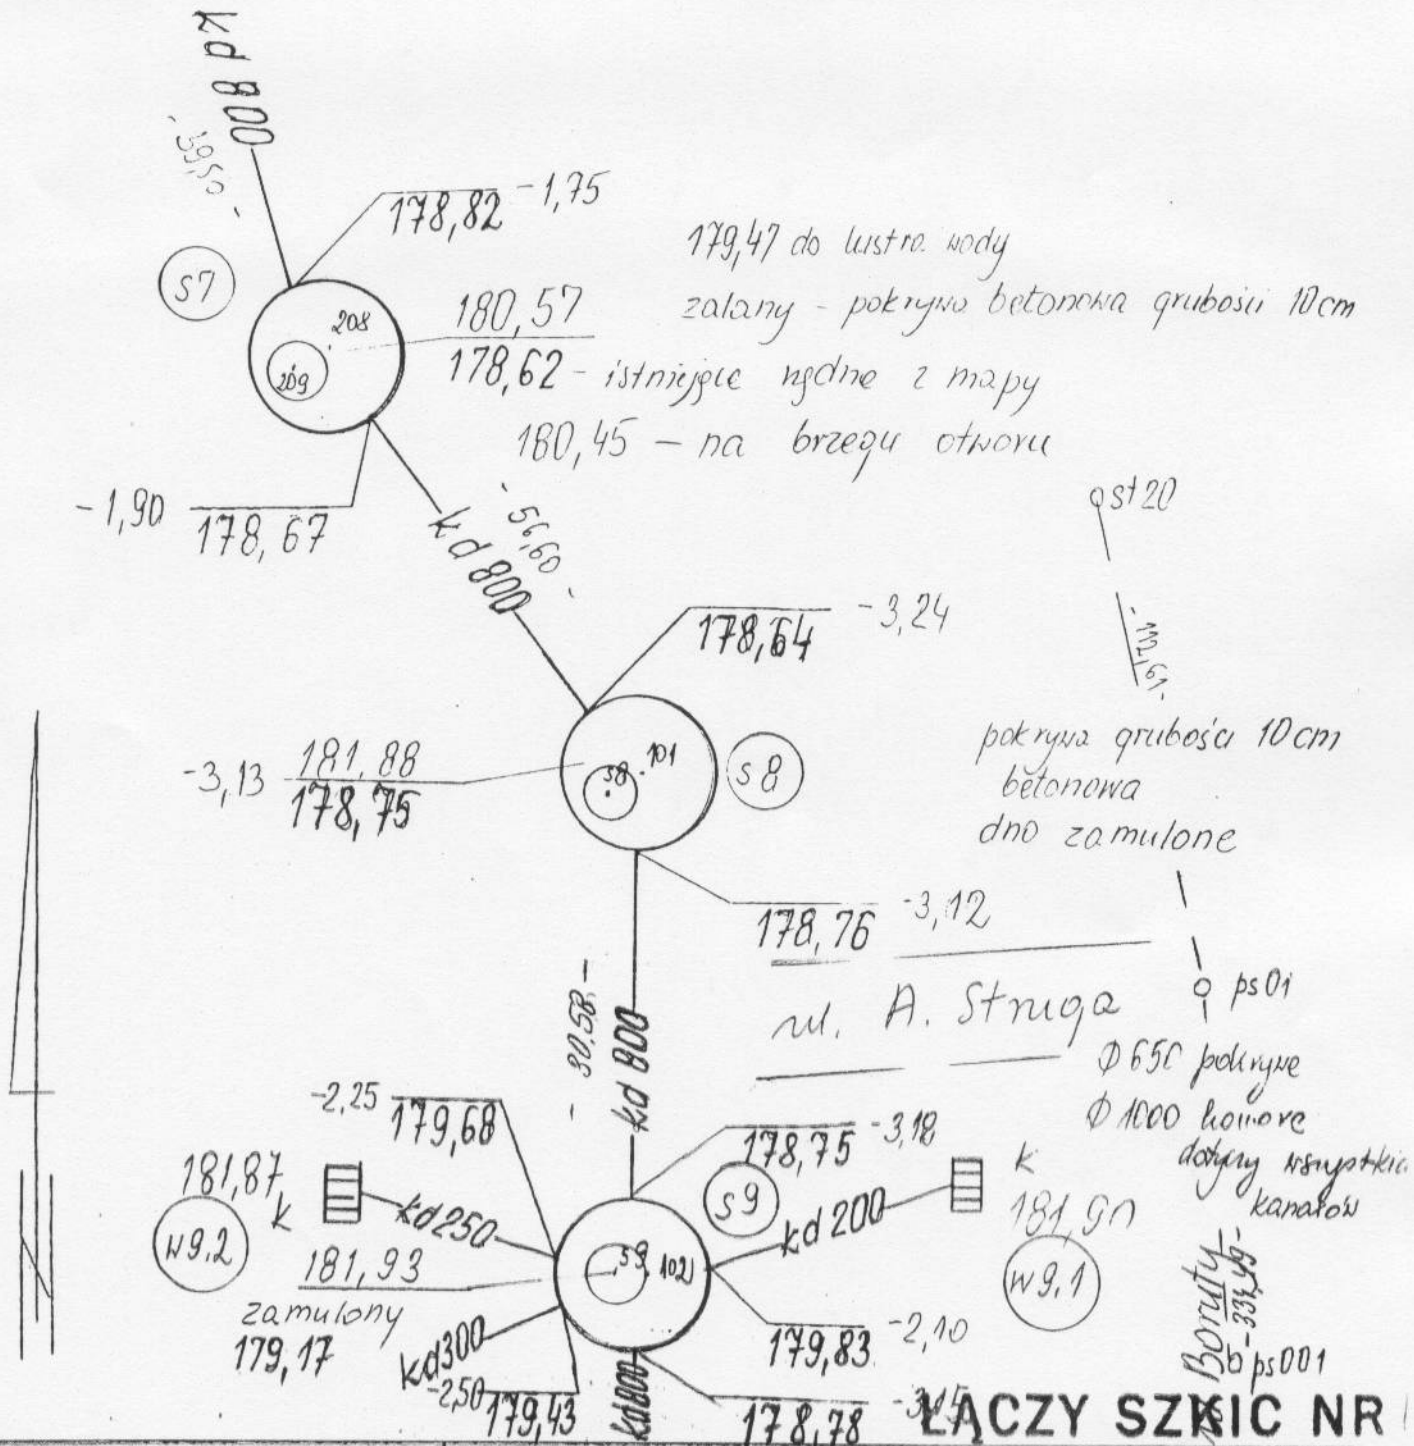 kd 800
- 39,50 -
178,82 -1,75
s7
208
209
180,57
178,62 - istniejące rzędne z mapy
179,47 do lustra wody
zalany - pokrywa betonowa grubości 10cm
180,45 - na brzegu otworu
-1,90 178,67
- 56,60 -
kd 800
st20
- 112,61 -
178,64 -3,24
-3,13 181,88
178,75
s8 101
s8
pokrywa grubości 10cm
betonowa
dno zamulone
178,76 -3,12
ul. A. Struga
ps01
- 30,58 -
kd 800
Φ 650 pokrywe
Φ 1000 komore
dotyczy wszystkich
kanałów
-2,25 179,68
178,75 -3,18
s9
181,87
k
w9.2
kd250
kd 200
k
181,90
w9.1
181,93
zamulony
179,17
s9 102
kd300
-2,50 179,43
kd800
179,83 -2,10
178,78 -3,15
Boruty
- 334,49 -
ps001
ŁĄCZY SZKIC NR